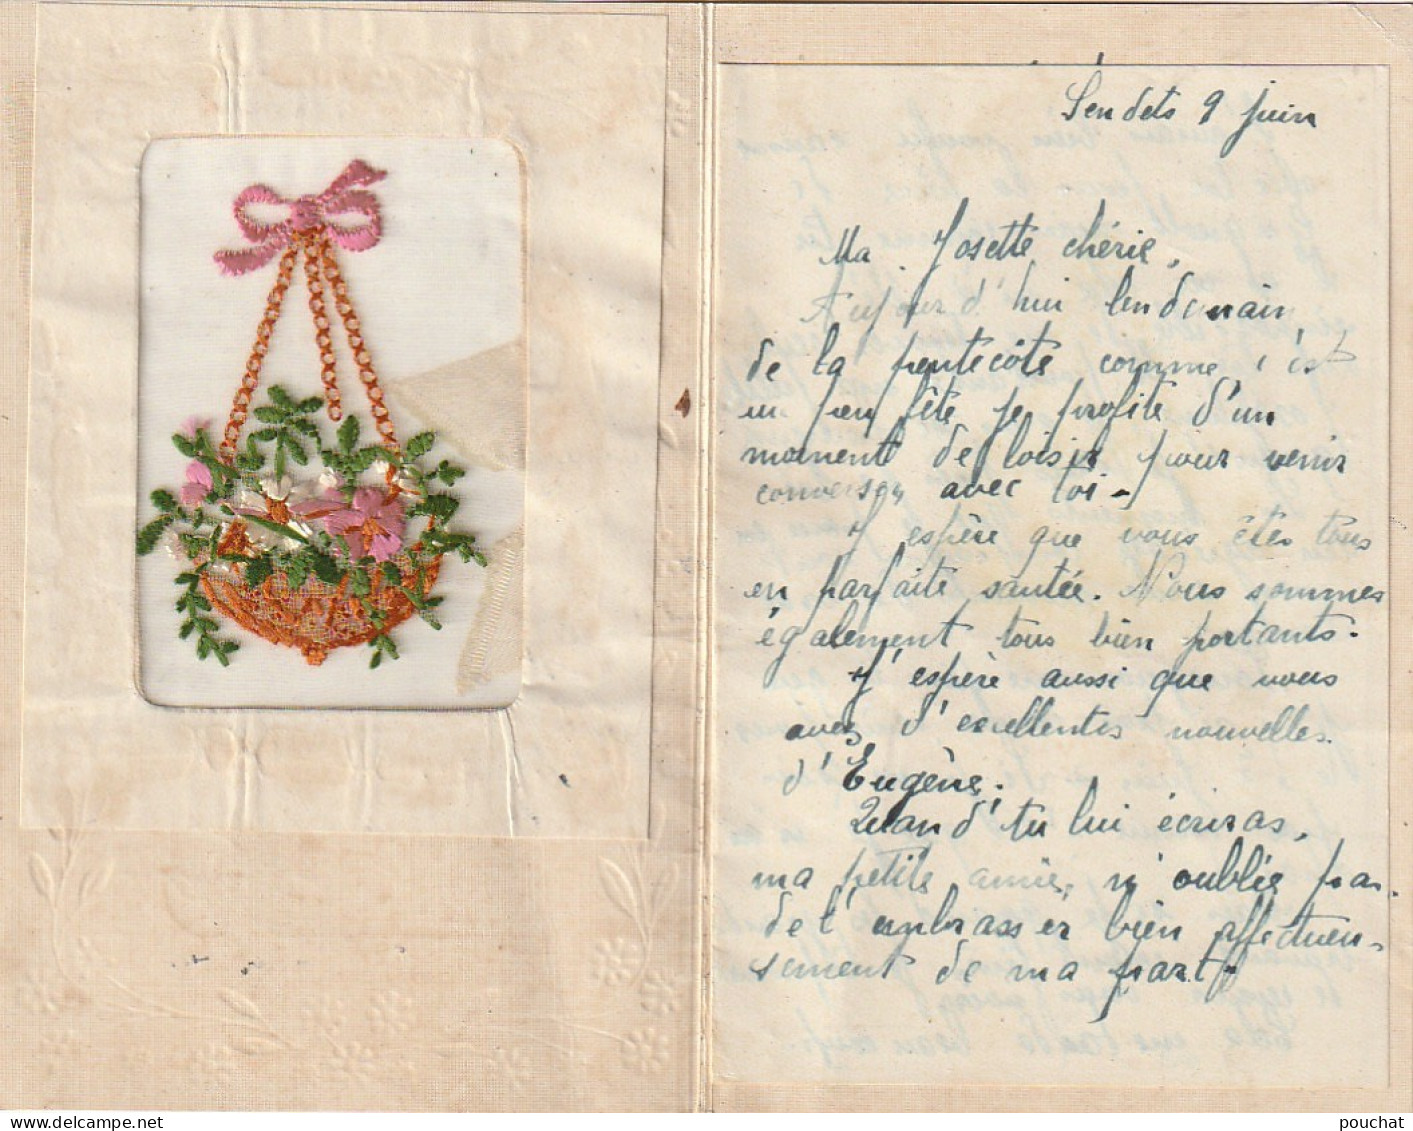 Sendets 9 juin
Ma Josette chérie,
Aujourd'hui lendemain
de la pentecôte comme c'est
un peu fête je profite d'un
moment de loisir pour venir
converser avec toi -
J'espère que vous êtes tous
en parfaite santée. Nous sommes
également tous bien portants.
J'espère aussi que vous
avez d'excellentes nouvelles
d'Eugène.
Quand tu lui écriras,
ma petite amie, n'oublie pas
de l'embrasser bien affectueu-
sement de ma part.
pouchat